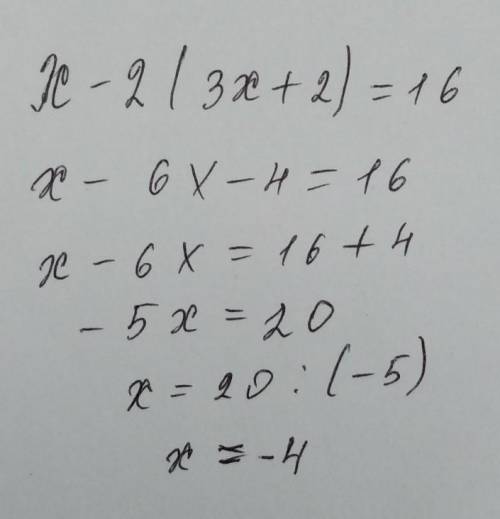 x - 2(3x + 2) = 16
x - 6x - 4 = 16
x - 6x = 16 + 4
- 5x = 20
x = 20 : (-5)
x = -4